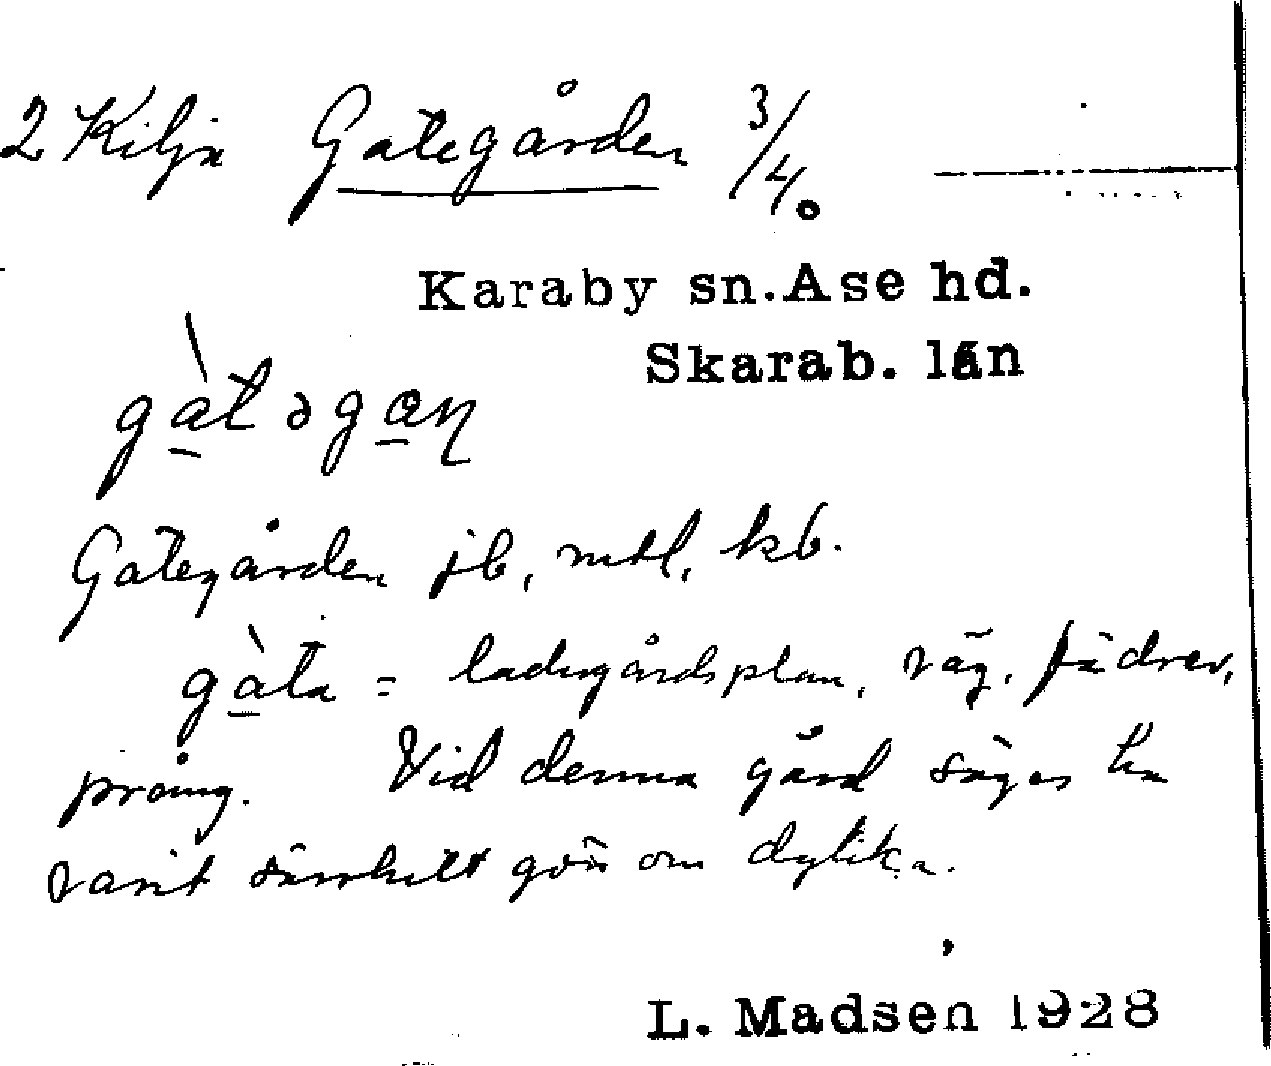 2 Kilja Gategården 3/4
Karaby sn. Åse hd.
Skarab. län
gàtəgaɳ
Gategården jb, mtl, kb.
gàta = ladugårdsplan, väg, fädrev,
prång. Vid denna gård säges ha
varit särskilt gott om dylika.
L. Madsen 1928